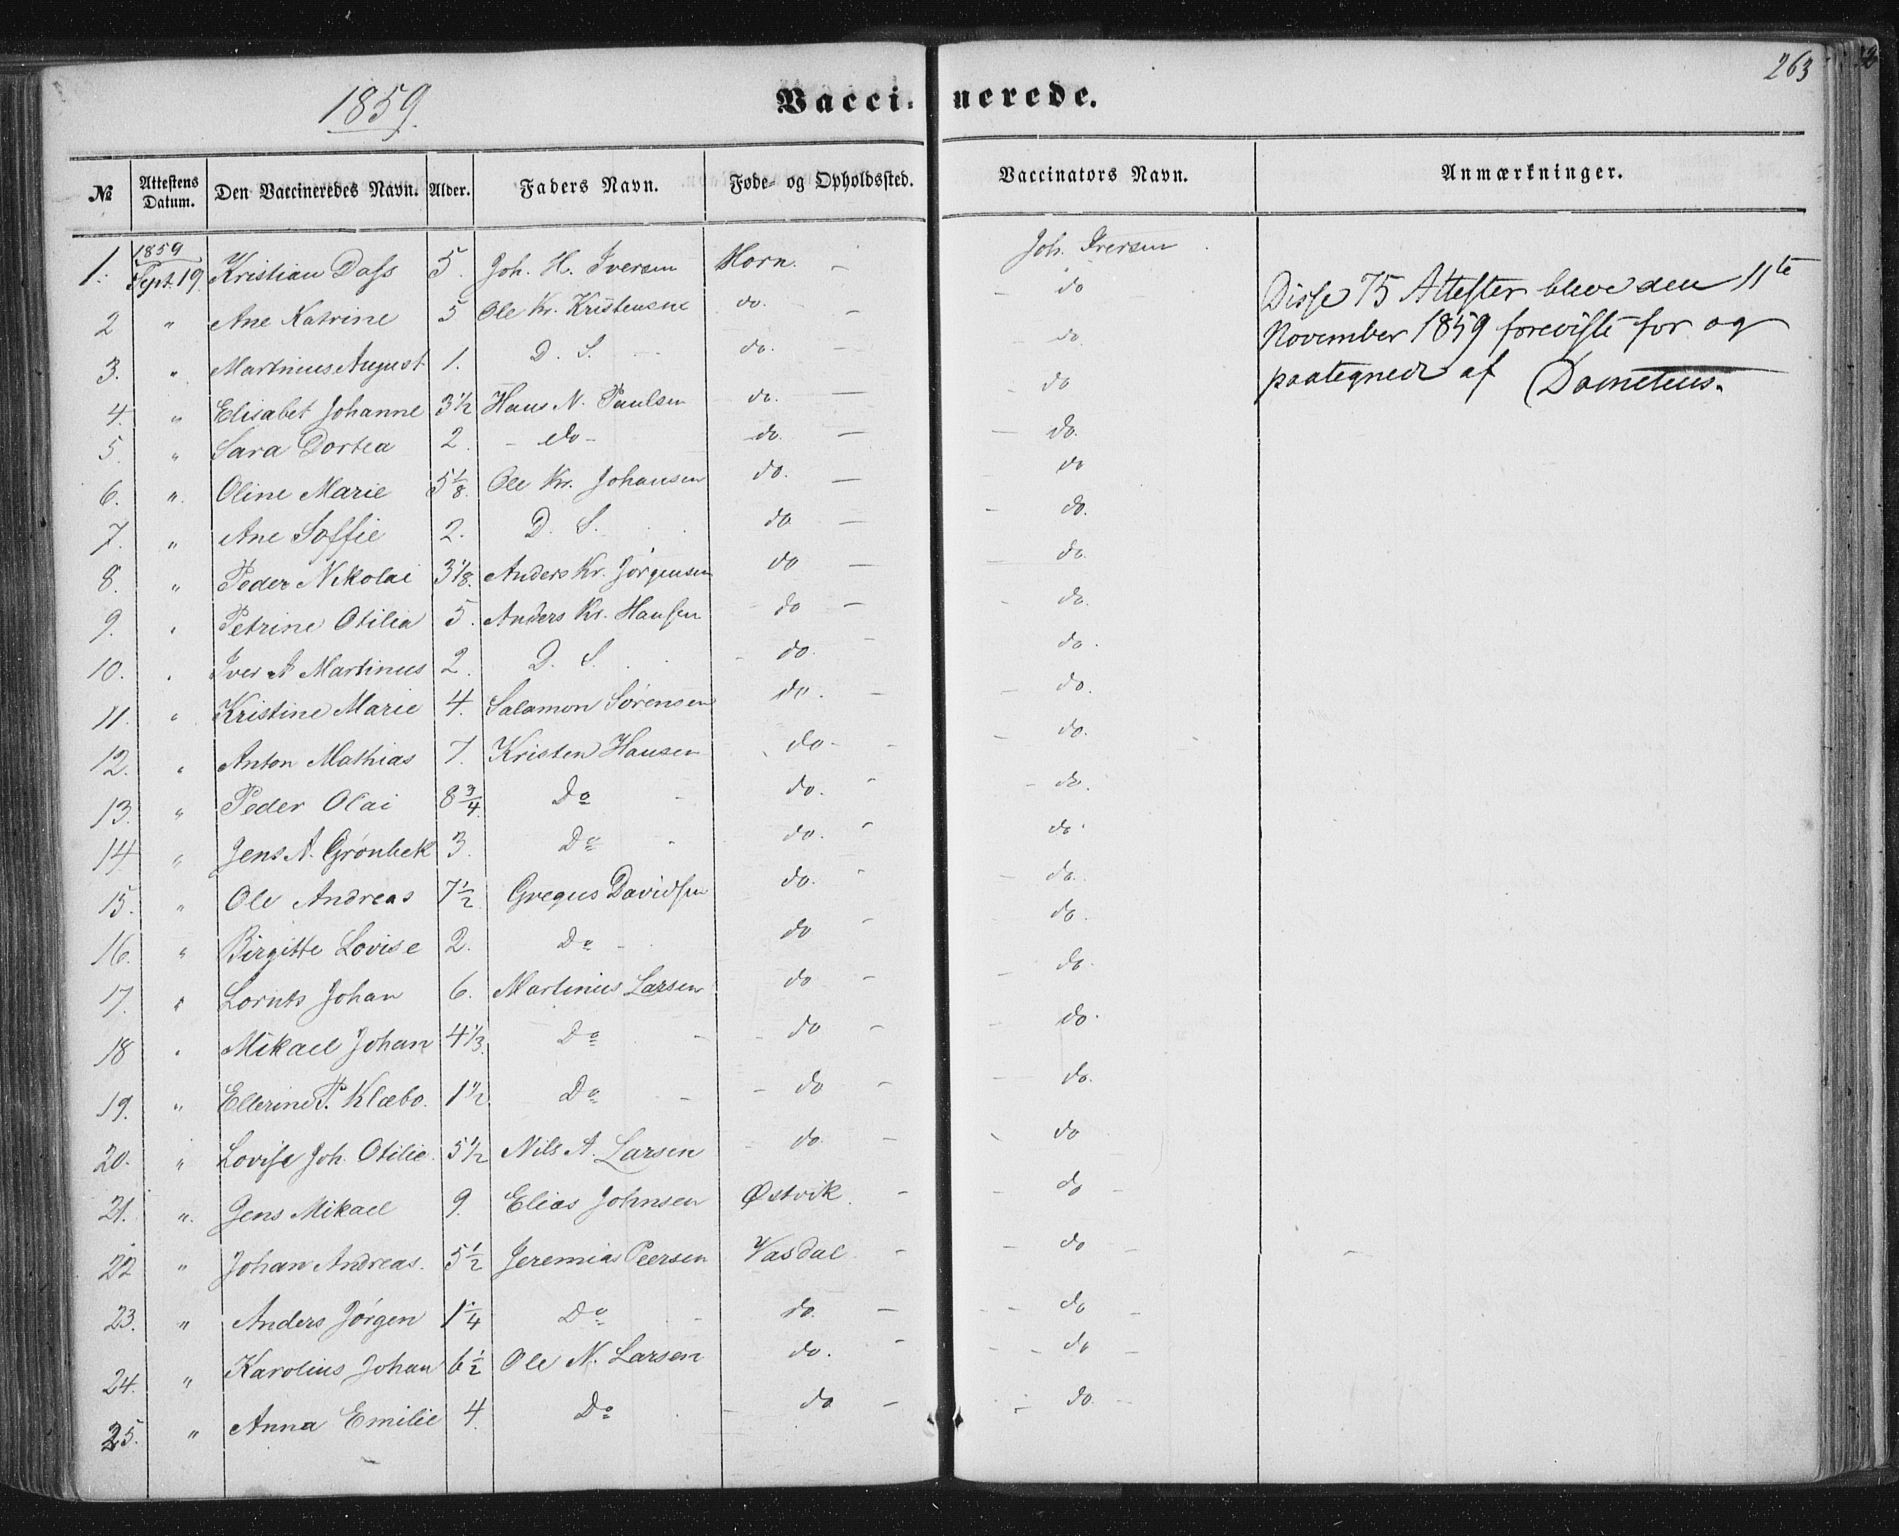 263
1859.
Vaccinerede.
№ | Attestens Datum. | Den Vaccineredes Navn. | Alder. | Faders Navn. | Føde- og Opholdssted. | Vaccinators Navn. | Anmærkninger.
1. | 1859 Sept. 19. | Kristian Dass | 5. | Joh. H. Iversen | Horn. | Joh. Iversen
2 | " | Ane Katrine | 5 | Ole Kr. Kristensen | do. | do
3. | " | Martinus August | 1. | D. S. | do. | do.
4. | " | Elisabet Johanne | 3 1/2 | Hans N. Paulsen | do. | do
5. | " | Sara Dortea | 2. | do | do. | do.
6. | " | Oline Marie | 5 1/8. | Ole Kr. Johansen | do. | do
7. | " | Ane Soffie | 2. | D. S. | do | do.
8. | " | Peder Nikolai | 3 1/8. | Anders Kr. Jørgensen | do | do.
9. | " | Petrine Otilia | 5. | Anders Kr. Hansen | do | do.
10. | " | Iver A Martinus | 2. | D. S. | do. | do.
11. | " | Kristine Marie | 4. | Salamon Sørensen | do. | do.
12. | " | Anton Mathias | 7. | Kristen Hansen | do. | do.
13. | " | Peder Olai | 8 3/4. | Do | do. | do.
14 | " | Jens A. Grønbek | 3. | Do | do. | do.
15. | " | Ole Andreas | 7 1/2 | Gregus Davidsen | do. | do.
16. | " | Birgitte Lovise | 2. | Do | do | do.
17. | " | Lornts Johan | 6. | Martinus Larsen | do | do.
18 | " | Mikael Johan | 4 1/3. | Do | do | do.
19. | " | Ellerine P. Klæbo. | 1 1/2 | Do | do | do.
20. | " | Lovise Joh. Otilie. | 5 1/2 | Nils A. Larsen | do | do
21. | " | Jens Mikael | 9. | Elias Johnsen | Østvik. | do
22 | " | Johan Andreas. | 5 1/2 | Jeremias Peersen | Vasdal | do
23. | " | Anders Jørgen | 1 1/4 | Do | do. | do
24. | " | Karolius Johan | 6 1/2 | Ole N. Larsen | do. | do
25. | " | Anna Emilie | 4. | Do | do | do.
Disse 75 Attester bleve den 11te
November 1859 foreviste for og
paategnede af